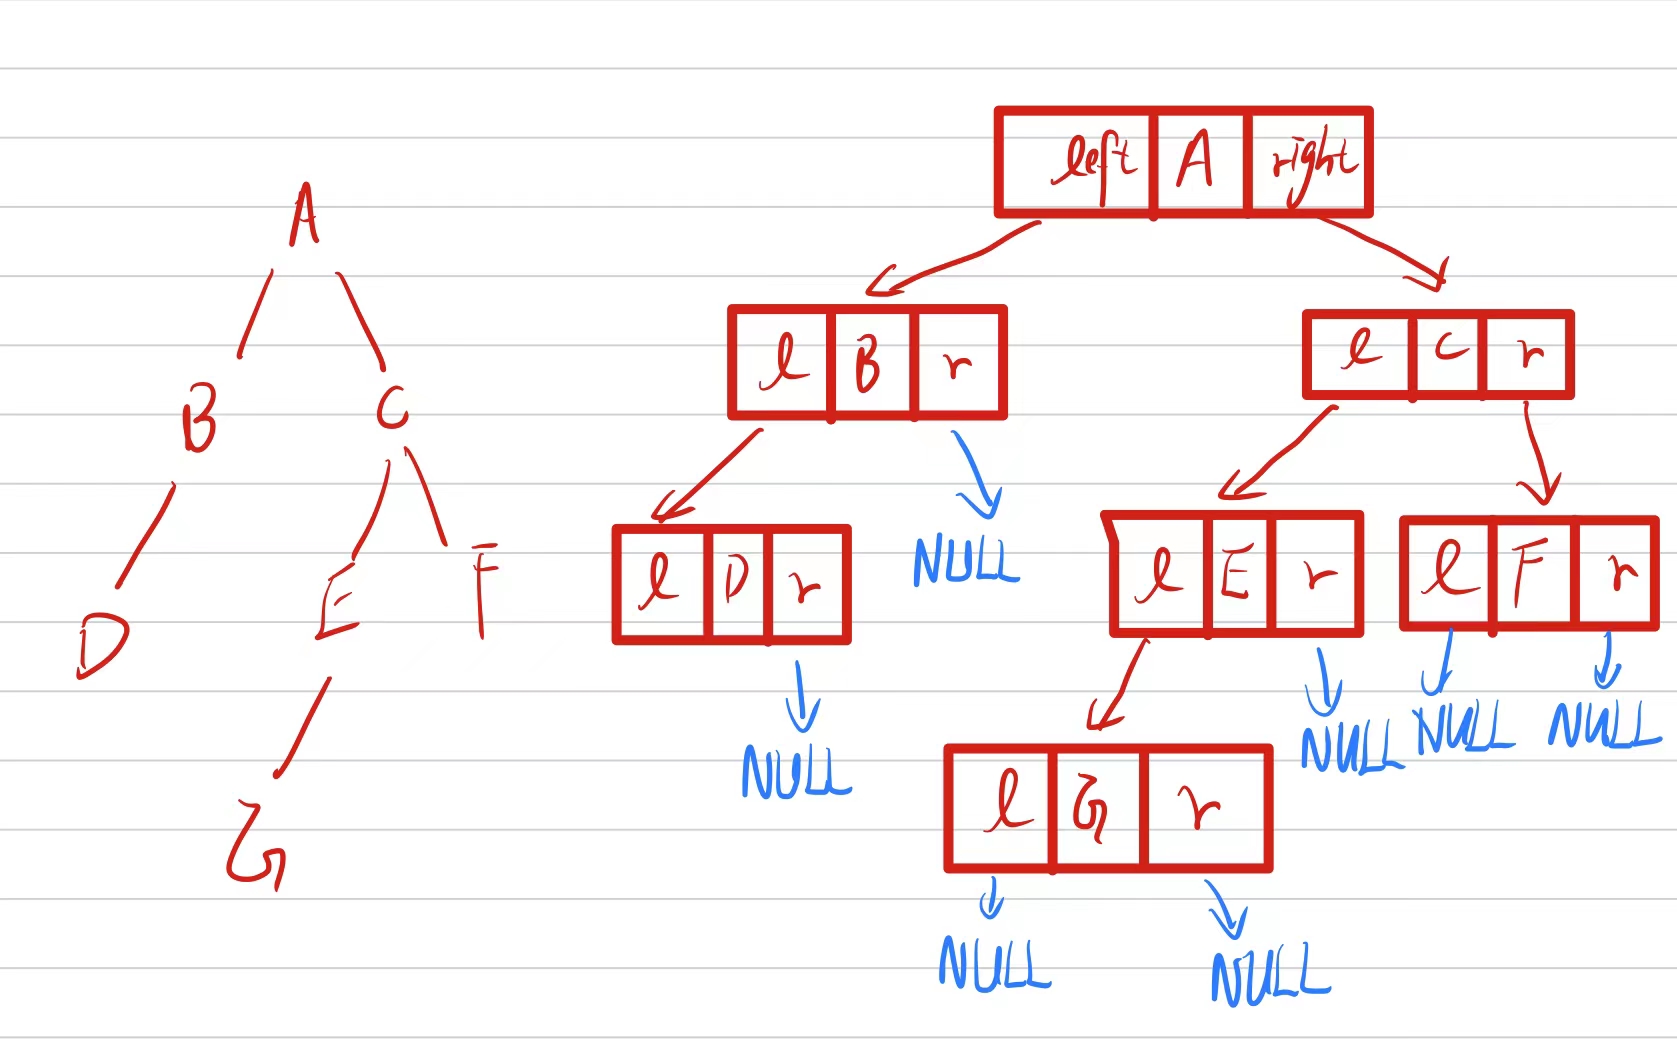 A
B C
D E F
G
left A right
l B r
l C r
l D r
NULL
l E r
l F r
NULL
NULL
NULL
NULL
l G r
NULL
NULL